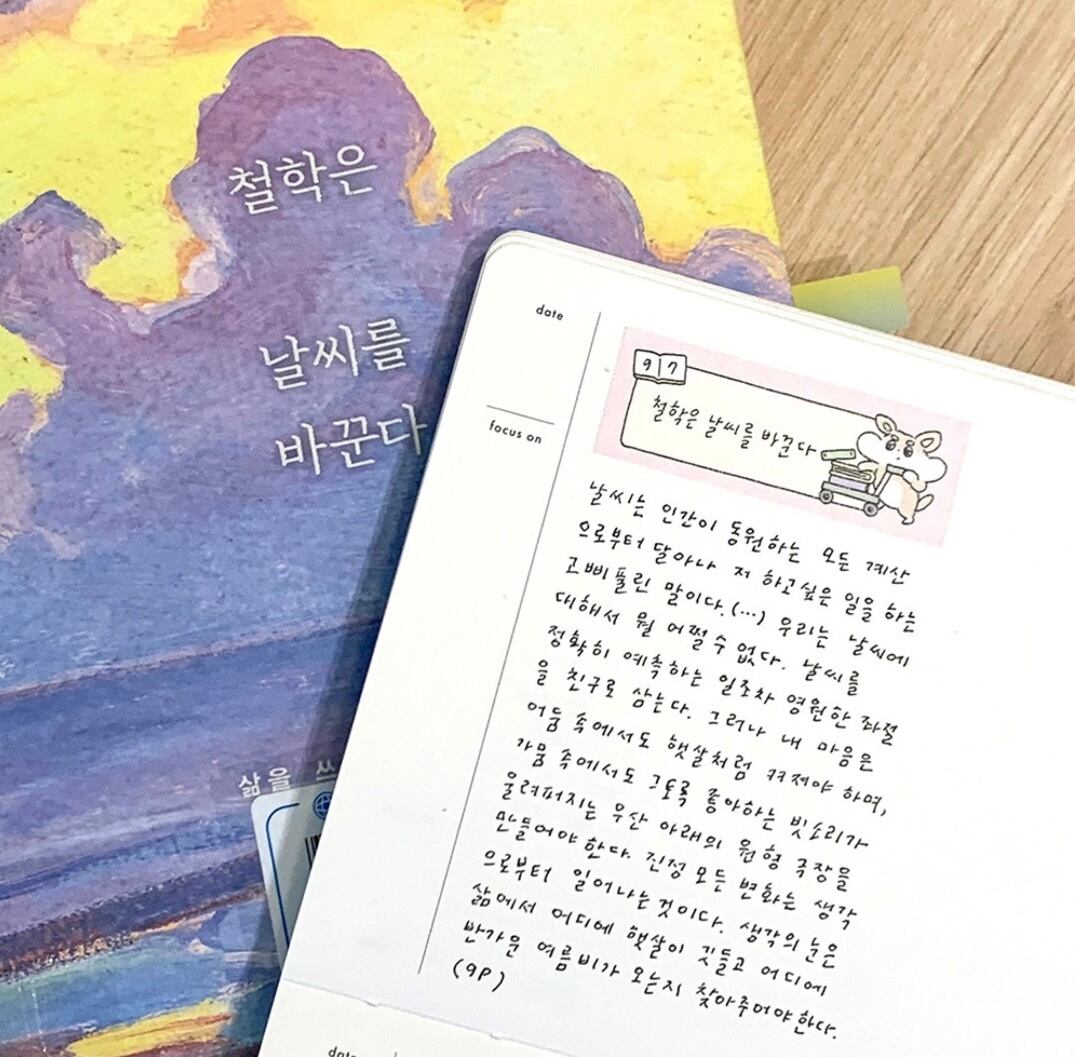 철학은
날씨를
바꾼다
삶을
date
focus on
9 7
철학은 날씨를 바꾼다
날씨는 인간이 동원하는 모든 계산
으로부터 달아나 저 하고싶은 일을 하는
고삐풀린 말이다.(…) 우리는 날씨에
대해서 뭘 어쩔 수 없다. 날씨를
정확히 예측하는 일조차 영원한 좌절
을 친구로 삼는다. 그러나 내 마음은
어둠 속에서도 햇살처럼 켜져야 하며,
가뭄 속에서도 그토록 좋아하는 빗소리가
울려퍼지는 우산 아래의 원형 극장을
만들어야 한다. 진정 모든 변화는 생각
으로부터 일어나는 것이다. 생각의 눈은
삶에서 어디에 햇살이 깃들고 어디에
반가운 여름비가 오는지 찾아주어야 한다.
(9P)
date